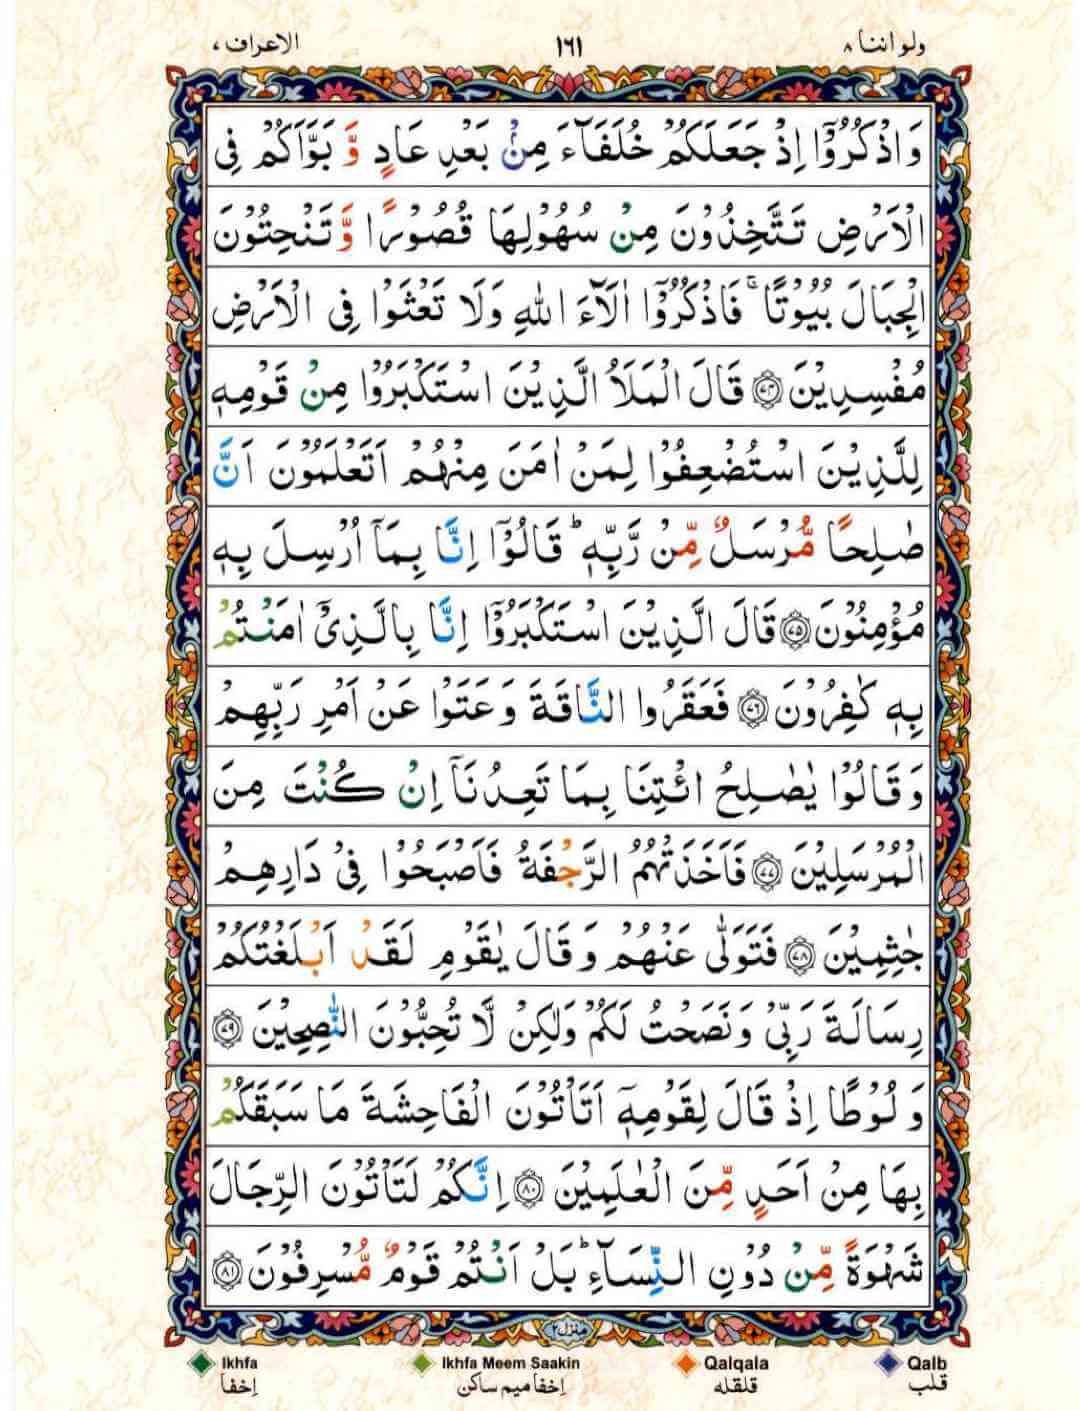 ولواننا ٨ ١٦١ الاعراف ٧
وَاذْكُرُوْۤا اِذْ جَعَلَكُمْ خُلَفَآءَ مِنْۢ بَعْدِ عَادٍ وَّ بَوَّاَكُمْ فِی
الْاَرْضِ تَتَّخِذُوْنَ مِنْ سُهُوْلِهَا قُصُوْرًا وَّ تَنْحِتُوْنَ
الْجِبَالَ بُيُوْتًا ۚ فَاذْكُرُوْۤا اٰلَآءَ اللّٰهِ وَلَا تَعْثَوْا فِی الْاَرْضِ
مُفْسِدِيْنَ ﴿٧٤﴾ قَالَ الْمَلَاُ الَّذِيْنَ اسْتَكْبَرُوْا مِنْ قَوْمِهٖ
لِلَّذِيْنَ اسْتُضْعِفُوْا لِمَنْ اٰمَنَ مِنْهُمْ اَتَعْلَمُوْنَ اَنَّ
صٰلِحًا مُّرْسَلٌ مِّنْ رَّبِّهٖ ؕ قَالُوْۤا اِنَّا بِمَاۤ اُرْسِلَ بِهٖ
مُؤْمِنُوْنَ ﴿٧٥﴾ قَالَ الَّذِيْنَ اسْتَكْبَرُوْۤا اِنَّا بِالَّذِیْۤ اٰمَنْتُمْ
بِهٖ كٰفِرُوْنَ ﴿٧٦﴾ فَعَقَرُوا النَّاقَةَ وَعَتَوْا عَنْ اَمْرِ رَبِّهِمْ
وَقَالُوْا يٰصٰلِحُ ائْتِنَا بِمَا تَعِدُنَاۤ اِنْ كُنْتَ مِنَ
الْمُرْسَلِيْنَ ﴿٧٧﴾ فَاَخَذَتْهُمُ الرَّجْفَةُ فَاَصْبَحُوْا فِیْ دَارِهِمْ
جٰثِمِيْنَ ﴿٧٨﴾ فَتَوَلّٰی عَنْهُمْ وَقَالَ يٰقَوْمِ لَقَدْ اَبْلَغْتُكُمْ
رِسَالَةَ رَبِّیْ وَنَصَحْتُ لَكُمْ وَلٰكِنْ لَّا تُحِبُّوْنَ النّٰصِحِيْنَ ﴿٧٩﴾
وَ لُوْطًا اِذْ قَالَ لِقَوْمِهٖۤ اَتَاْتُوْنَ الْفَاحِشَةَ مَا سَبَقَكُمْ
بِهَا مِنْ اَحَدٍ مِّنَ الْعٰلَمِيْنَ ﴿٨٠﴾ اِنَّكُمْ لَتَاْتُوْنَ الرِّجَالَ
شَهْوَةً مِّنْ دُوْنِ النِّسَآءِ ؕ بَلْ اَنْتُمْ قَوْمٌ مُّسْرِفُوْنَ ﴿٨١﴾
منزل ٢
Ikhfa Ikhfa Meem Saakin Qalqala Qalb
اِخفا اِخفا میم ساکن قلقله قلب